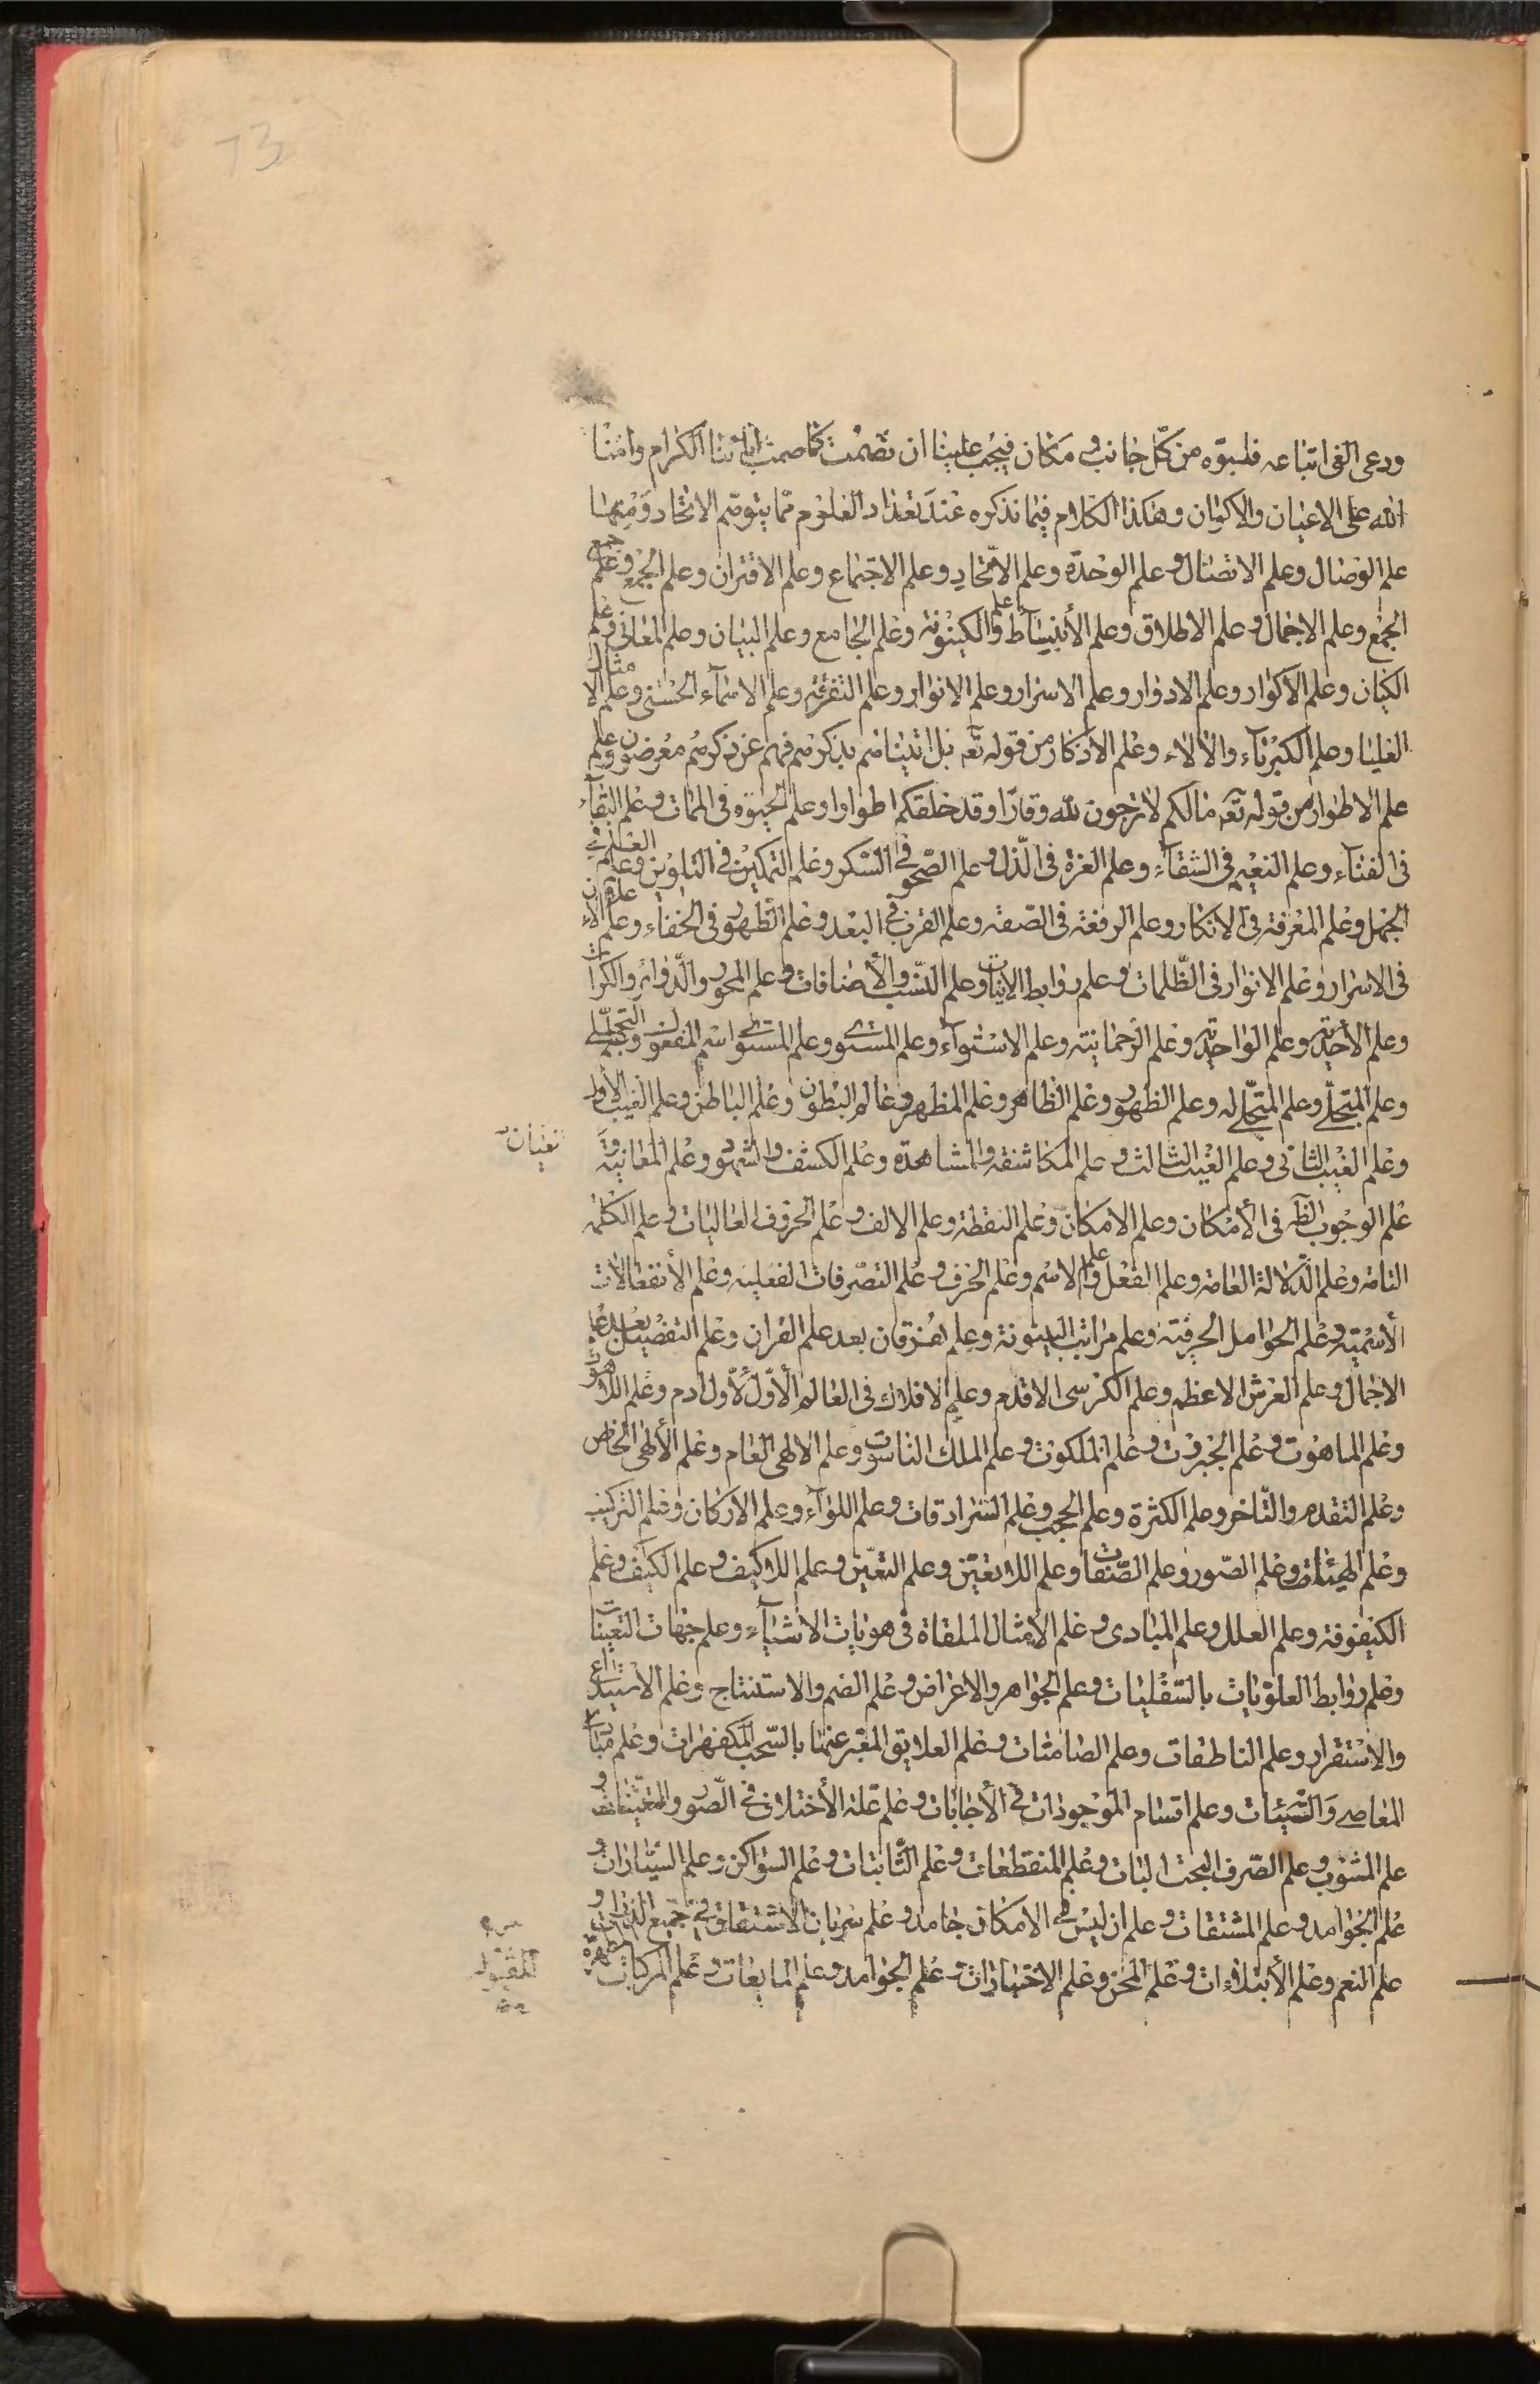 73
ودعى الغى اتباعه فلبوّه من كلّ جانب و مكان فيجب علينا ان نصمت كما صمت ابائنا الكرام وامنا
الله على الاعيان والاكوان وهكذا الكلام فيما نذكره عند تعداد العلوم مما يتوهّم الاتحاد ومنها
علم الوصال وعلم الاتصال و علم الوحدة وعلم الاتّحاد وعلم الاجتماع وعلم الاقتران وعلم الجمع وعلم جمع
الجمع وعلم الاجمال و علم الاطلاق وعلم الأنبساط وعلم الكينونة وعلم الجامع وعلم البيان وعلم المعانى وعلم
الكيان وعلم الاكوار وعلم الادوار وعلم الاسرار وعلم الانوار وعلم التفرقة وعلم الاسمآء الحسنى وعلم الامثال
العليا وعلم الكبريآء والالاء وعلم الاذكار من قوله تعه بل اتيناهم بذكرهم فهم عن ذكرهم معرضون وعلم
علم الاطوار من قوله تعه مالكم لاترجون لله وقارًا وقد خلقكم اطوارا وعلم الحيوة فى الممات وعلم البقآء
فى الفنآء وعلم النعيم فى الشقآء وعلم العزة فى الذّل و علم الصّحو فى السّكر وعلم التمكين فى التلوين وعلم العلم فى
الجهل وعلم المعرفة فى الانكار وعلم الرفعة فى الصّفه وعلم القرب فى البعد وعلم الظهور فى الخفاء وعلم الاعلان
فى الاسرار وعلم الانوار فى الظّلمات و علم روابط الانيات وعلم النّسب والأضافات و علم المحور والدّوائر والكرات
وعلم الأحديّة وعلم الواحديّة وعلم الرحمانيته وعلم الاستوآء وعلم المستوى وعلم المستوى اسم المفعول و التجلّى
وعلم المتجلّى وعلم المتجلّى له وعلم الظهور وعلم الظاهر وعلم المظهر وعالم البطون وعلم الباطن وعلم الغيب الأول
وعلم الغيب الثانى و علم الغيب الثالث و علم المكاشفه والمشاهدة وعلم الكشف والشهود وعلم المعانيّة و
علم الوجوب الظه فى الأمكان وعلم الامكان وعلم النقطة وعلم الالف و علم الحروف العاليات و علم الكلمة
التامه وعلم الدّلالة العامة وعلم الفعل وعلم الاسم وعلم الحرف و علم التصّرفات الفعليه وعلم الأنفعالات
الأسميّة و علم الحوامل الحرفيّة وعلم مراتب البينونة وعلم الفرقان بعد علم القران وعلم التفصيل بعد علم
الاجمال و علم العرش الاعظم وعلم الكرسى الاقدم وعلم الافلاك فى العالم الأوّل لأول ادم وعلم اللاهوت
وعلم الماهوت و علم الجبروت و علم الملكوت و علم الملك الناسوت وعلم الالهى العام وعلم الألهى الخاص
وعلم التقدم والتّاخر وعلم الكثرة وعلم الحجب وعلم السرادقات و علم اللوآء وعلم الاركان وعلم التركيب
وعلم الهيئات وعلم الصّور وعلم الصّفات وعلم اللاتعيّن وعلم التعيّن و علم اللاكيف و علم الكيف وعلم
الكيفوفة وعلم العلل وعلم المبادى و علم الأمثال الملقاة فى هويات الاشيآء وعلم جهات التعينات
وعلم روابط العلويات بالسّفليات و علم الجواهر والاعراض و علم الضم والاستنتاج وعلم الاستيداع
والاستقرار وعلم الناطقات وعلم الصامتات و علم العلايق المعبر عنها بالسّحب المكفهرات وعلم مبادى
المعاصى والسّيئات وعلم اقسام الموجودات فى الأجابات و علم علة الأختلاف فى الصّور والتعيّنات و
علم المشوب و علم الصّرف البحت البات و علم المنقطعات و علم الثّابتات و علم السواكن وعلم السيّارات و
علم الجوامد و علم المشتقات و علم ان ليس فى الامكان جامد و علم سريان الاشتقاق فى جميع الذرات و
علم النعم وعلم الأبتلاءات و علم المحن وعلم الاختبارات و علم الجوامد و علم المايعات و علم المركبات
تعيان
المقبول